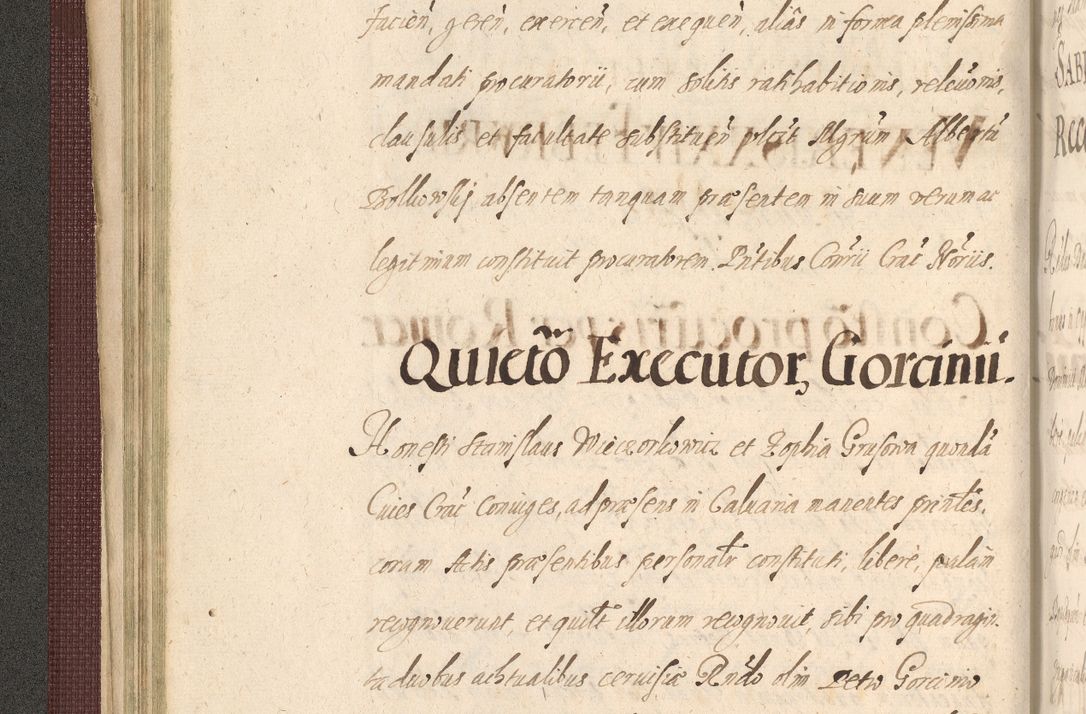 facien̄, geren̄, exercen̄, et exequen̄, aliâs in forma plenissima
mandati procuratorii, cum solitis ratihabitionis, relevonis,
clausulis et facultate substituen̄ Mgrum Albertū
absentem tanquam præsentem in suum verum ac
legitimum constituit procuratorem. Pñtibus Conrii Crac̄ Noriis.
Quietõ Executor, Gorcinii.
Honesti Stanislaus Wieczorkowicz et Zophia Grusowa quondā
Cives Crac̄ Coniuges, ad præsens in Calvaria manentes prinles.
coram Actis præsentibus personalr constituti, liberè, palàm
recognoverunt, et quilt illorum recognovit, sibi pro quadragin-
ta duobus achtualibus cerevisiæ Rndo olim Petro Gorcinio